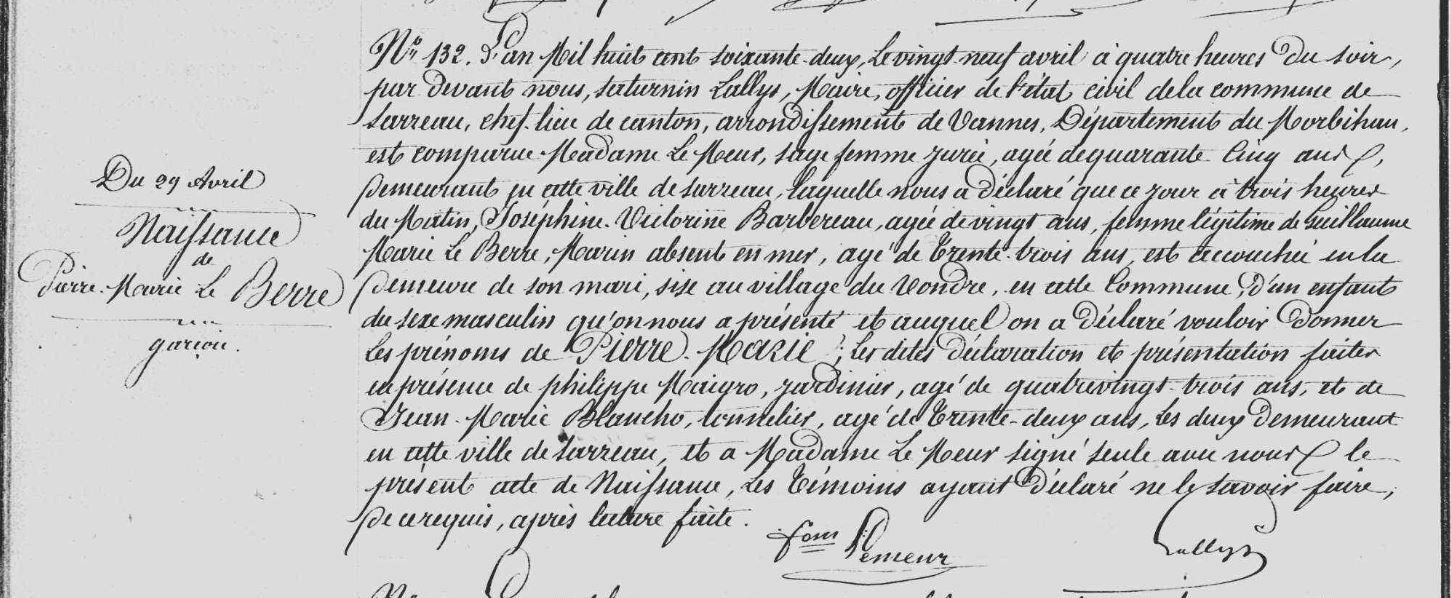 Du 29 Avril
Naissance
de
Pierre Marie Le Berre
un
garçon.
No 132. L'an Mil huit cent soixante deux, le vingt neuf avril à quatre heures du soir,
par devant nous, Saturnin Lallys, Maire, officier de l'état civil de la commune de
Sarzeau, chef-lieu de canton, arrondissement de Vannes, Département du Morbihan,
est comparue Madame Le Meur, sage femme jurée, agée de quarante Cinq ans,
Demeurant en cette ville de Sarzeau, laquelle nous a déclaré que ce jour à trois heures
du Matin, Joséphine Victorine Barbereau, agée de vingt ans, femme légitime de Guillaume
Marie Le Berre, Marin absent en mer, agé de Trente trois ans, est accouchée en la
Demeure de son mari, sise au village du Vondre, en cette Commune, d'un enfant
du sexe masculin qu'on nous a présenté et auquel on a déclaré vouloir Donner
les prénoms de Pierre Marie; les dites déclaration et présentation faites
en présence de philippe Maigro, jardinier, agé de quatrevingt trois ans, et de
Jean Marie Blancho, tonnelier, agé de Trente-deux ans, les deux Demeurant
en cette ville de Sarzeau, et a Madame Le Meur signé seule avec nous le
présent acte de Naissance, les témoins ayant déclaré ne le savoir faire,
De ce requis, après lecture faite.
fom Lemeur
Lallys